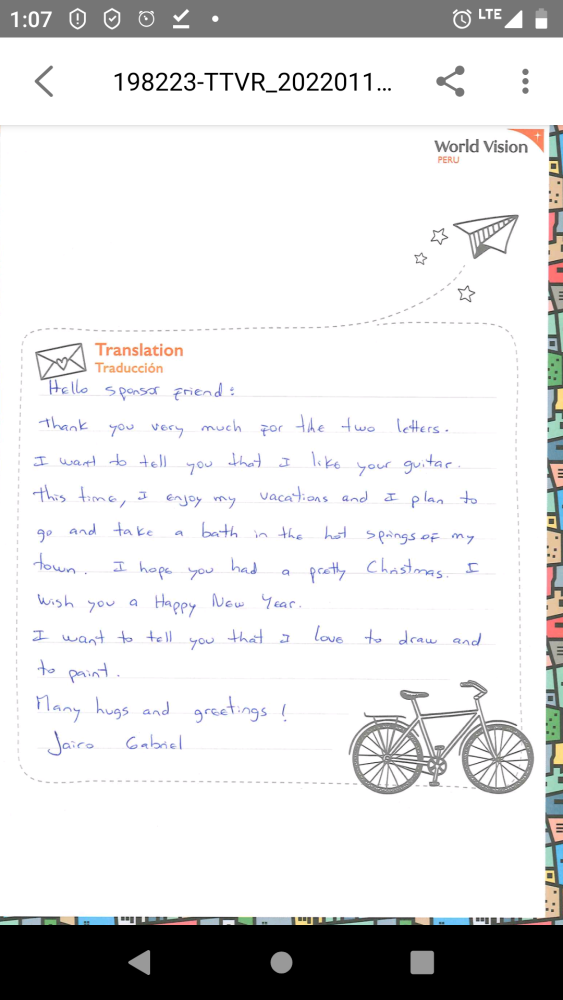 1:07
LTE
198223-TTVR_2022011...
World Vision
PERU
Translation
Traducción
Hello sponsor friend:
Thank you very much for the two letters.
I want to tell you that I like your guitar.
This time, I enjoy my vacations and I plan to
go and take a bath in the hot springs of my
town. I hope you had a pretty Christmas. I
wish you a Happy New Year.
I want to tell you that I love to draw and
to paint.
Many hugs and greetings!
Jairo Gabriel